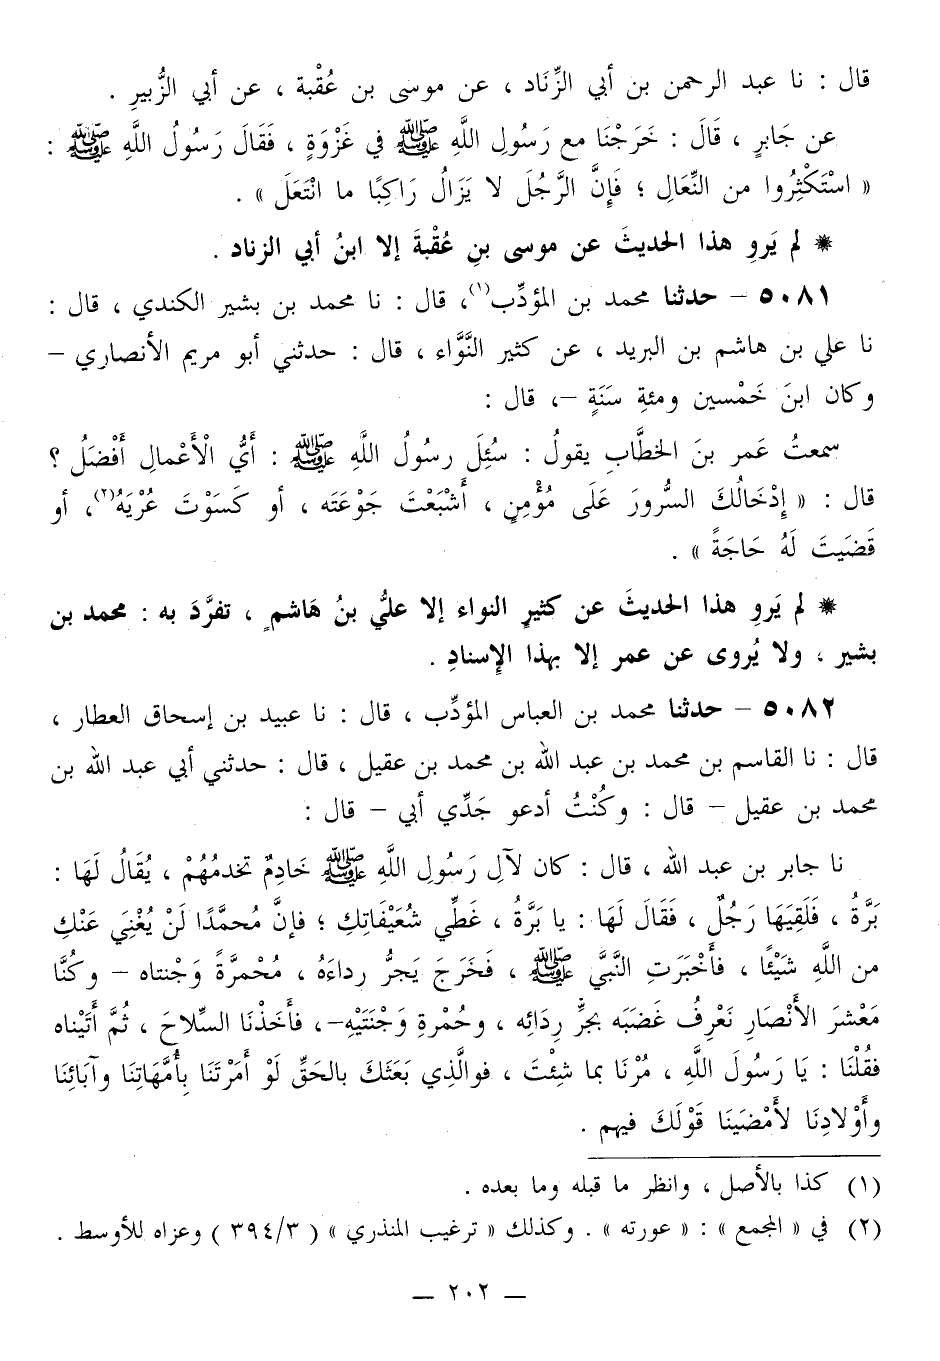 قال : نا عبد الرحمن بن أبي الزِّنَاد ، عن موسى بن عُقْبة ، عن أبي الزُّبيرِ .
عن جَابرٍ ، قَالَ : خَرَجْنَا مع رَسُولِ اللَّهِ ﷺ في غَزْوَةٍ ، فَقَالَ رَسُولُ اللَّهِ ﷺ :
« اسْتَكْثِرُوا من النِّعَالِ ؛ فَإِنَّ الرَّجُلَ لا يَزَالُ رَاكِبًا ما انْتَعَلَ » .
* لم يَروِ هذا الحديثَ عن موسى بنِ عُقْبةَ إلا ابنُ أبي الزناد .
٥٠٨١ – حدثنا محمد بن المؤدِّب(١)، قال : نا محمد بن بشير الكندي ، قال :
نا علي بن هاشم بن البريد ، عن كثير النَّوَّاء ، قال : حدثني أبو مريم الأنصاري –
وكان ابنَ خَمْسين ومئةِ سَنَةٍ –، قال :
سمعتُ عَمر بنَ الخطَّابِ يقولُ : سُئِلَ رسولُ اللَّهِ ﷺ : أَيُّ الْأَعْمالِ أَفْضَلُ ؟
قال : « إِدْخَالُكَ السُّرورَ عَلَى مُؤْمِنٍ ، أَشْبَعْتَ جَوْعَتَه ، أو كَسَوْتَ عُرْيَهُ(٢)، أو
قَضَيتَ لَهُ حَاجَةً » .
* لم يَروِ هذا الحديثَ عن كثيرٍ النواء إلا عليُّ بنُ هَاشمٍ ، تفرَّدَ به : محمد بن
بشير ، ولا يُروى عن عمر إلا بهذا الإِسنادِ .
٥٠٨٢ – حدثنا محمد بن العباس المؤدِّب ، قال : نا عبيد بن إسحاق العطار ،
قال : نا القاسم بن محمد بن عبد الله بن محمد بن عقيل ، قال : حدثني أبي عبد الله بن
محمد بن عقيل – قال : وكُنْتُ أدعو جَدِّي أبي – قال :
نا جابر بن عبد الله ، قال : كان لآلِ رَسُولِ اللَّهِ ﷺ خَادِمٌ تخدمُهُمْ ، يُقَالُ لَهَا :
بَرَّةُ ، فَلَقِيَهَا رَجُلٌ ، فَقَالَ لَهَا : يا بَرَّةُ ، غَطِّي شُعَيْفَاتِكِ ؛ فإنَّ مُحمَّدًا لَنْ يُغْنِيَ عَنْكِ
من اللَّهِ شَيْئًا ، فأَخْبَرَتِ النَّبيَّ ﷺ ، فَخَرَجَ يَجرُّ رداءَهُ ، مُحْمرَّةً وَجْنتاه – وكُنَّا
مَعْشَرَ الأَنْصَارِ نَعْرِفُ غَضَبَه بجرِّ رِدَائِه ، وحُمْرةِ وَجْنَتَيْهِ–، فأخَذْنَا السِّلاحَ ، ثُمَّ أَتَيْناه
فقُلْنَا : يَا رَسُولَ اللَّهِ ، مُرْنَا بما شِئْتَ ، فوالَّذِي بَعَثَكَ بالحَقِّ لَوْ أَمَرْتَنَا بِأُمَّهَاتِنَا وآبَائِنَا
وأَوْلادِنَا لأَمْضَينَا قَوْلَكَ فيهم .
(١) كذا بالأصل ، وانظر ما قبله وما بعده .
(٢) في « المجمع » : « عورته » . وكذلك « ترغيب المنذري » ( ٣/ ٣٩٤ ) وعزاه للأوسط .
– ٢٠٢ –